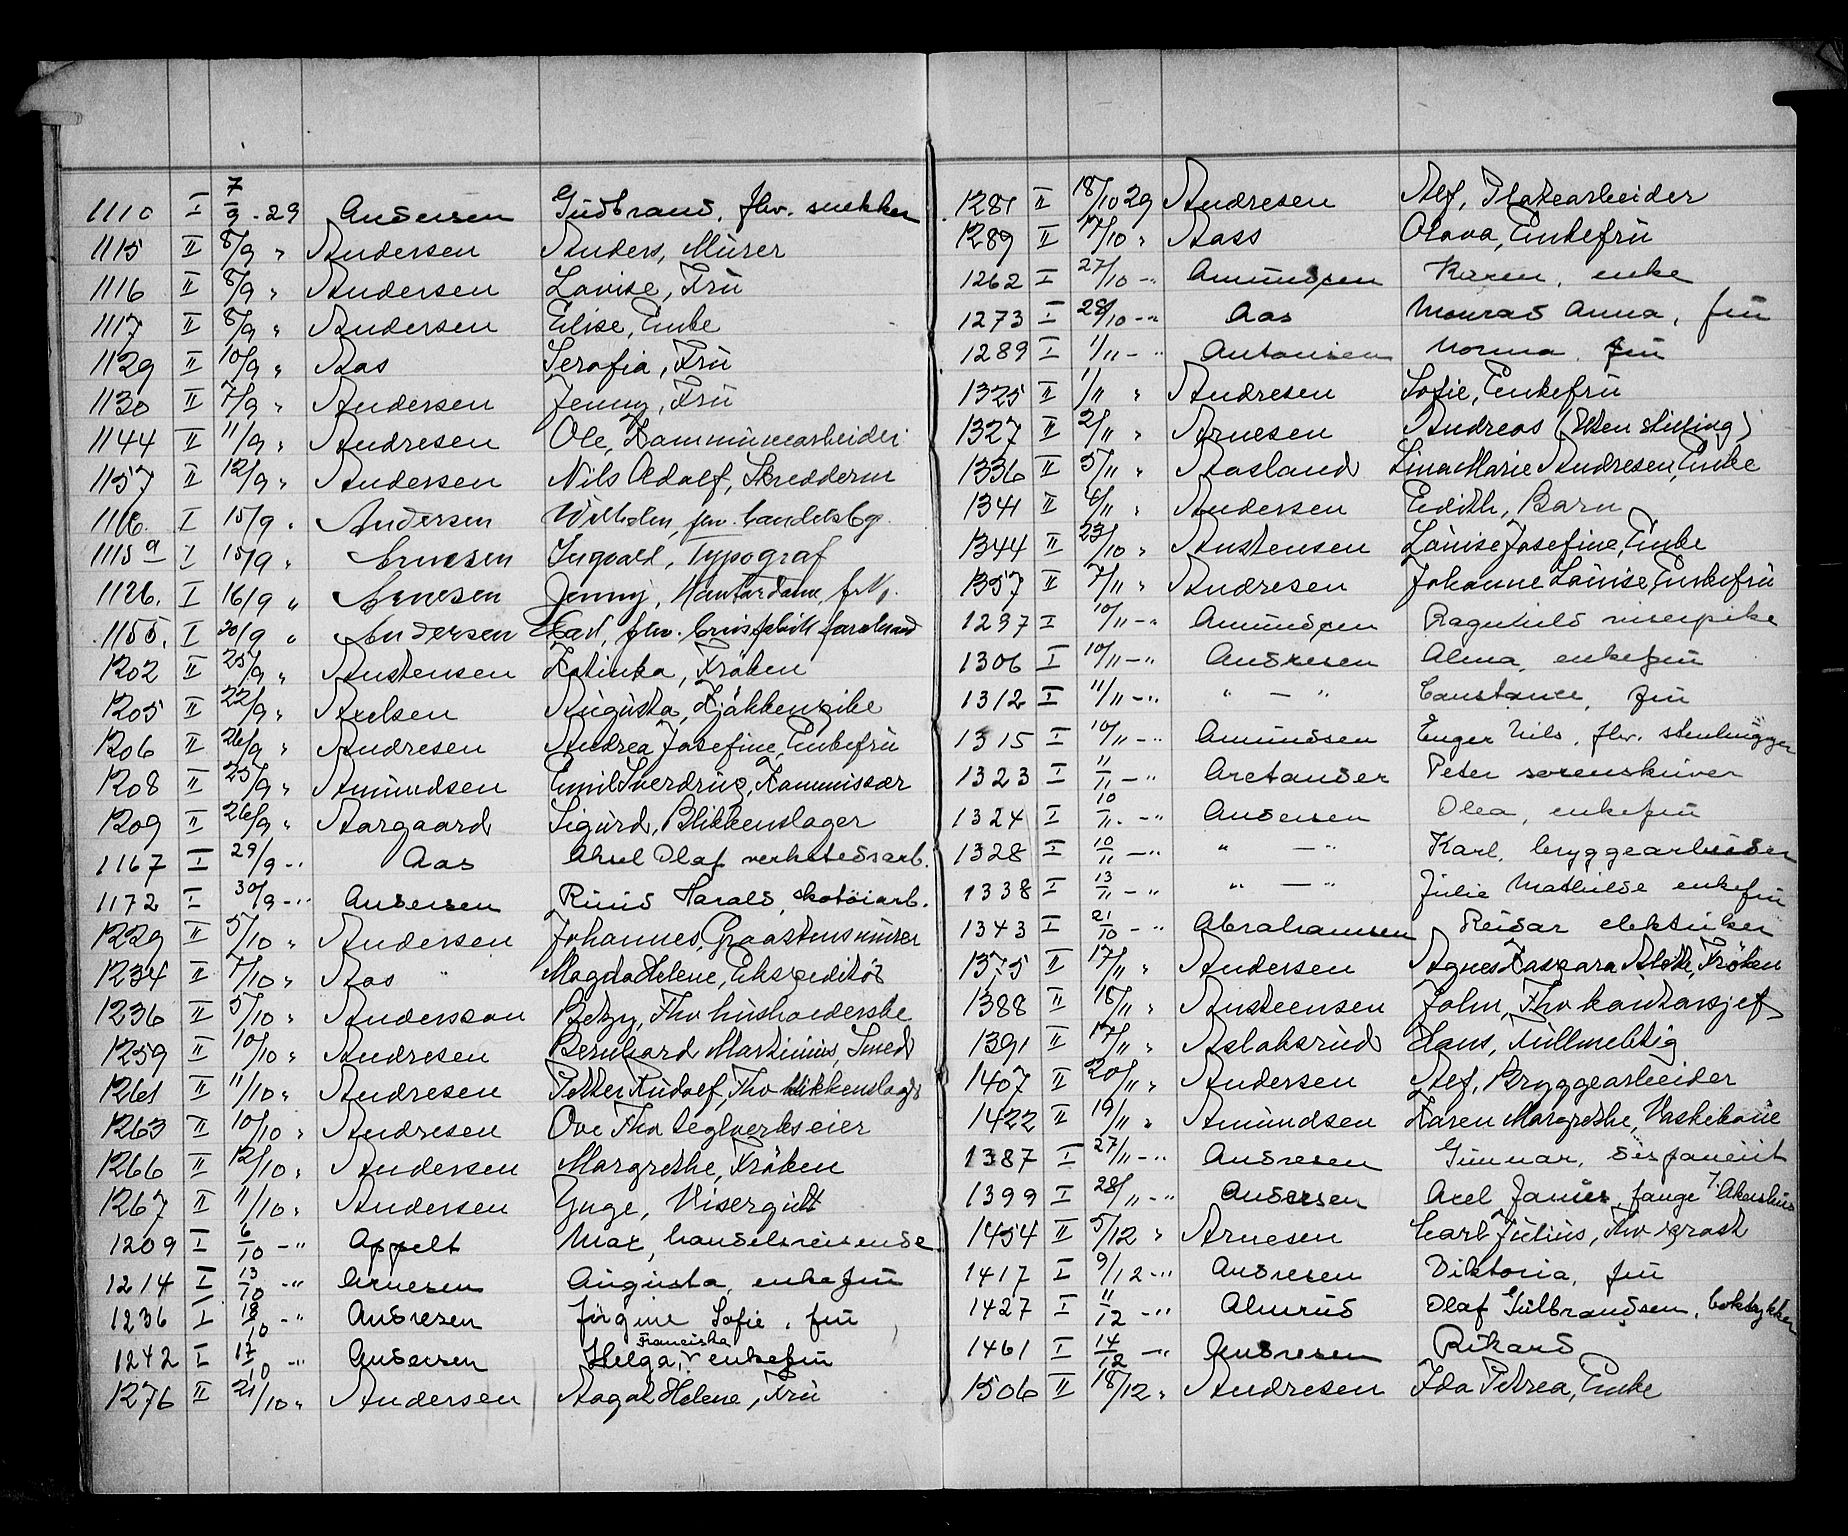 1110 I 7/9 - 29 Andersen Gudbrand, fhv. snekker
1115 II 8/9 " Andersen Anders, Murer
1116 II 8/9 " Andersen Lovise, Fru
1117 II 8/9 " Andersen Elise, Enke
1129 II 10/9 " Aas Serafia, Fru
1130 II 7/9 " Andersen Jenny, Fru
1144 II 11/9 " Andresen Ole, Kommunearbeider
1157 II 12/9 " Andersen Nils Adolf, Skredderm
1116. I 15/9 " Andersen Wilhelm, fhv. handelsbg.
1115 a I 15/9 " Arnesen Ingvald, Typograf
1126. I 16/9 " Arnesen Jenny, Kontordame,
1155. I 20/9 " Andersen Carl, fhv.
1202 II 25/9 " Austensen Katinka, Frøken
1205 II 22/9 " Axelsen Augusta, Kjøkkenpike
1206 II 26/9 " Andresen Andrea Josefine, Enkefru
1208 II 25/9 " Amundsen Emil Sverdrup, Kommissær
1209 II 26/9 " Aargaard Sigurd, Blikkenslager
1167 I 29/9 - " Aas Aksel Olaf verkstedsarb.
1172 I 30/9 - " Andersen Harald, skotøiarb.
1229 II 5/10 " Andersen Johannes, Graastensmurer
1234 II 7/10 " Aas " Magda Helene, Ekspeditør
1236 II 5/10 " Andersson Betzy, Fhv husholderske
1259 II 10/10 " Andresen Bernhard Martinius, Smed
1261 II 11/10 " Andresen Petter Rudolf, Fhv blikkenslager
1263 II 10/10 " Andresen Ove Fhv teglverkseier
1266 II 12/10 " Andersen Margrethe, Frøken
1267 II 11/10 " Andersen Yngve, Visergutt
1209 I 6/10 - " Appelt Max, handelsreisende
1214 I 13/10 - " Arnesen Augusta, enkefru
1236 I 18/10 - " Andresen Jørgine Sofie, fru
1242 I 17/10 - " Andersen Helga, Franciska enkefru
1276 II 21/10 " Andersen Aagot Helene, Fru
1281 II 18/10 29 Andresen Alf, Platearbeider
1289 II 17/10 " Aass Olava, Enkefru
1262 I 27/10 - " Amundsen Karen, enke
1273 I 28/10 - " Aas Monrad Anna, fru
1289 I 1/11 - " Antonisen Norma, fru
1325 II 1/11 " Andresen Sofie, Enkefru
1327 II 2/11 " Arnesen Andreas (Uten stilling)
1336 II 5/11 " Aasland Lina Marie Andresen, Enke
1341 II 4/11 " Andersen Edith, Barn
1344 II 23/10 " Austensen Lovise Josefine, Enke
1357 II 7/11 " Andresen Johanne Lovise, Enkefru
1297 I 10/11 - " Amundsen Ragnhild viserpike
1306 I 10/11 - " Andresen Alma, enkefru
1312 I 11/11 - " " - " Constance, fru
1315 I 10/11 - " Amundsen Enger Nils, fhv. stenhugger
1323 I 11/11 - " Aretander Peter sorenskriver
1324 I 10/11. - " Andersen Olea, enkefru
1328 I 10/11 - " " - " Karl, bryggearbeider
1338 I 13/11 - " " - " Julie Mathilde enkefru
1343 I 21/10 - " Abrahamsen Reidar elektriker
1375 II 17/11 " Andersen Agnes Kaspara Frøken
1388 II 16/11 " Austeensen John, Fhv kontorsjef
1391 II 17/11 " Aslaksrud Hans, Fullmektig
1407 II 20/11 " Andersen Alf, Bryggearbeider
1422 II 19/11 " Amundsen Karen Margrethe, Vaskekone
1387 I 27/11 - " Andresen Gunnar, disponent
1399 I 28/11 - " Andersen Axel James, fange f. Akershus
1454 II 5/12 " Arnesen Carl Julius, Fhv
1417 I 9/12 - " Andresen Viktoria, fru
1427 I 11/12 - " Almrud Olaf Gulbrandsen, boktrykker
1461 I 14/12 - " Andresen Rikard
1506 II 18/12 " Andresen Ida Petrea, Enke